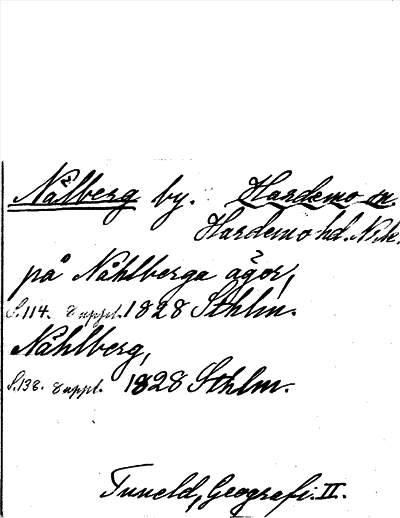 Nålberg by. Hardemo sn.
Hardemo hd. Nrk.
på Nåhlberga ägor,
S.114. 8 uppl. 1828 Sthlm.
Nåhlberg,
S.138. 8 uppl. 1828 Sthlm.
Tuneld, Geografi. II.